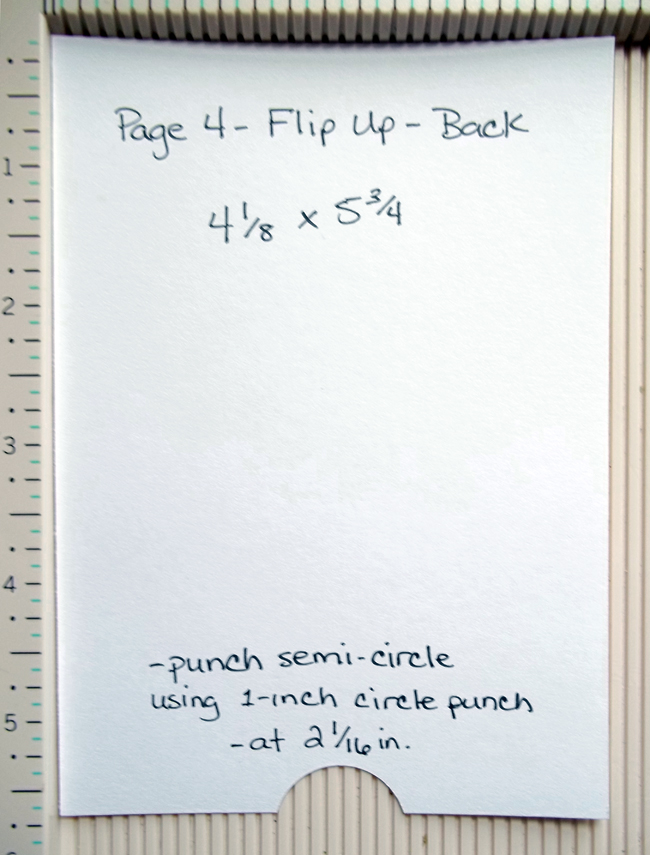 Page 4 - Flip Up - Back
4 1/8 x 5 3/4
1
2
3
4
5
-punch semi-circle
using 1-inch circle punch
-at 2 1/16 in.